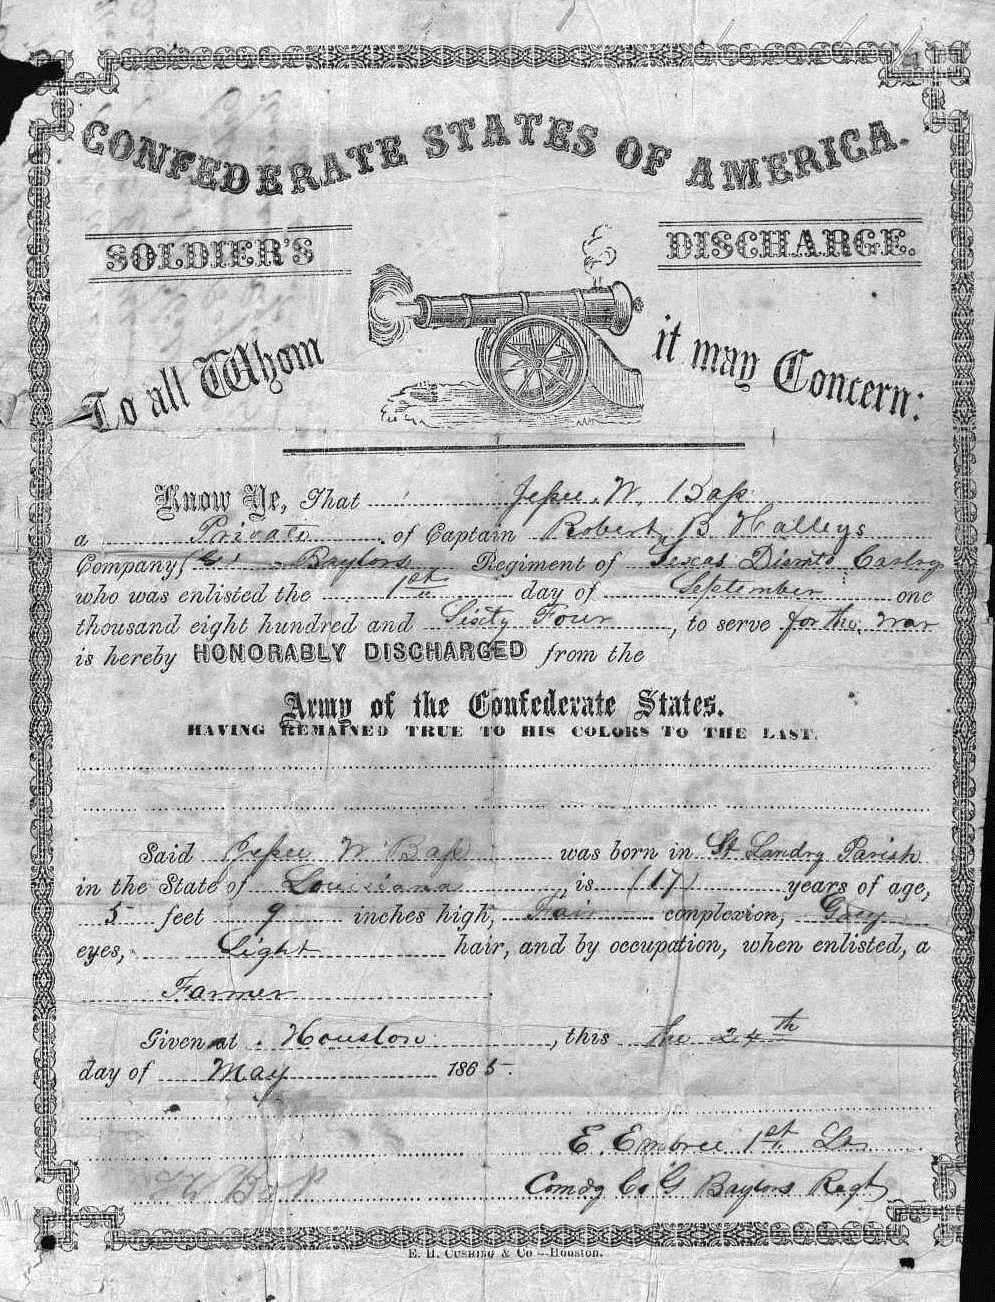 CONFEDERATE STATES OF AMERICA.
SOLDIER'S DISCHARGE.
To all Whom it may Concern:
Know Ye, That Jessee W. Bass
a Private of Captain Robert B Halleys
Company (G) Baylors Regiment of Texas Dismtd Cavlry
who was enlisted the 1st day of September one
thousand eight hundred and Sixty Four, to serve for the War
is hereby HONORABLY DISCHARGED from the
Army of the Confederate States.
HAVING REMAINED TRUE TO HIS COLORS TO THE LAST.
Said Jessee W Bass was born in St Landry Parish
in the State of Louisiana, is (17) years of age,
5 feet 9 inches high, Fair complexion, Grey
eyes, Light hair, and by occupation, when enlisted, a
Farmer.
Given at Houston, this the 24th
day of May 1865.
E. Embree 1st Lt
Comdg Co G Baylors Regt
E. H. CUSHING & Co—Houston.